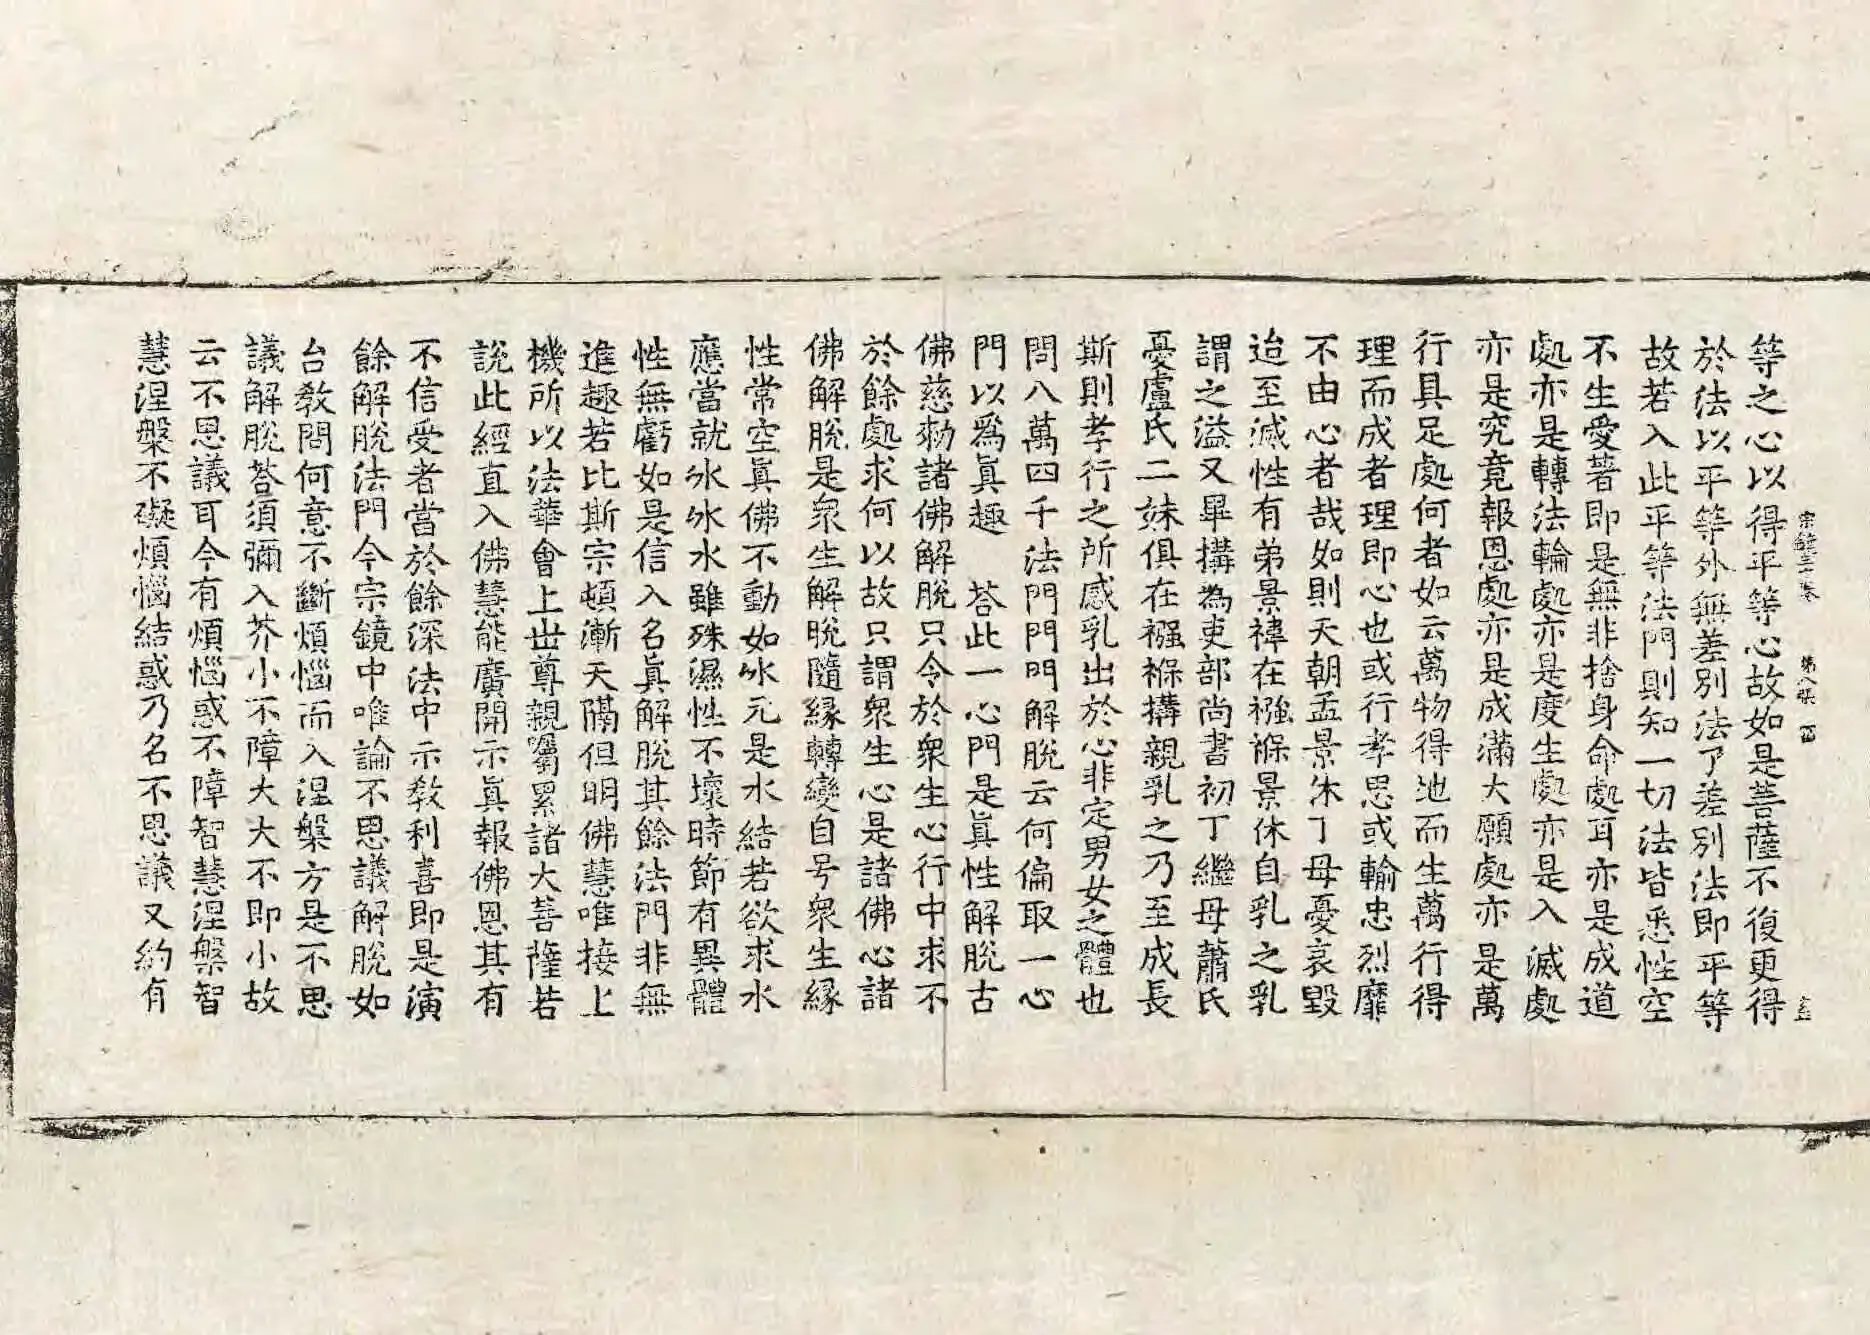 宗鏡三十卷 第八張
等之心以得平等心故如是菩薩不復更得
於法以平等外無差別法了差別法即平等
故若入此平等法門則知一切法皆悉性空
不生愛著即是無非捨身命處耳亦是成道
處亦是轉法輪處亦是度生處亦是入滅處
亦是究竟報恩處亦是成滿大願處亦是萬
行具足處何者如云萬物得地而生萬行得
理而成者理即心也或行孝思或輸忠烈靡
不由心者哉如則天朝孟景休丁母憂哀毀
迨至滅性有弟景禕在襁褓景休自乳之乳
謂之溢又畢搆為吏部尚書初丁繼母蕭氏
憂盧氏二妹俱在襁褓搆親乳之乃至成長
斯則孝行之所感乳出於心非定男女之體也
問八萬四千法門門門解脫云何偏取一心
門以爲眞趣 荅此一心門是眞性解脫古
佛慈勑諸佛解脫只令於衆生心行中求不
於餘處求何以故只謂衆生心是諸佛心諸
佛解脫是衆生解脫隨緣轉變自号衆生緣
性常空眞佛不動如氷元是水結若欲求水
應當就氷氷水雖殊濕性不壞時節有異體
性無虧如是信入名眞解脫其餘法門非無
進趣若比斯宗頓漸天隔但明佛慧唯接上
機所以法華會上世尊親囑累諸大菩薩若
說此經直入佛慧能廣開示眞報佛恩其有
不信受者當於餘深法中示敎利喜即是演
餘解脫法門今宗鏡中唯論不思議解脫如
台敎問何意不斷煩惱而入涅槃方是不思
議解脫荅須彌入芥小不障大大不即小故
云不思議耳今有煩惱惑不障智慧涅槃智
慧涅槃不礙煩惱結惑乃名不思議又約有